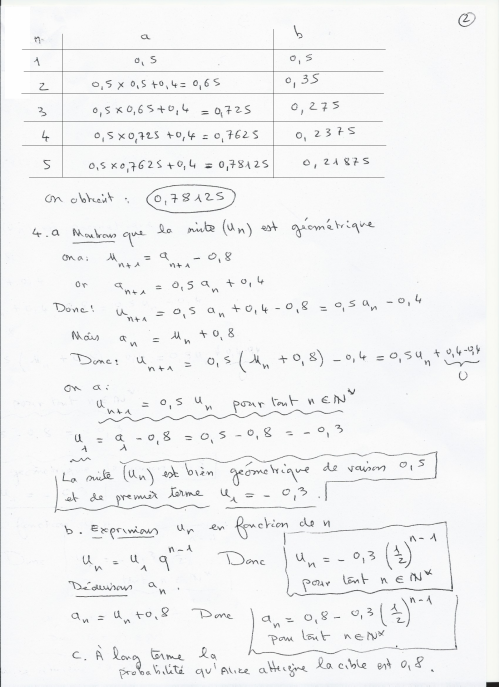 2
n a b
1 0,5 0,5
2 0,5 × 0,5 + 0,4 = 0,65 0,35
3 0,5 × 0,65 + 0,4 = 0,725 0,275
4 0,5 × 0,725 + 0,4 = 0,7625 0,2375
5 0,5 × 0,7625 + 0,4 = 0,78125 0,21875
on obtient : 0,78125
4.a Montrons que la suite (Un) est géométrique
on a: u_{n+1} = a_{n+1} - 0,8
or a_{n+1} = 0,5 a_n + 0,4
Donc: u_{n+1} = 0,5 a_n + 0,4 - 0,8 = 0,5 a_n - 0,4
Mais a_n = u_n + 0,8
Donc: u_{n+1} = 0,5 (u_n + 0,8) - 0,4 = 0,5 u_n + 0,4 - 0,4
0
on a:
u_{n+1} = 0,5 u_n pour tout n ∈ ℕ*
u_1 = a_1 - 0,8 = 0,5 - 0,8 = - 0,3
La suite (Un) est bien géométrique de raison 0,5
et de premier terme u_1 = - 0,3.
b. Exprimons u_n en fonction de n
u_n = u_1 q^{n-1} Donc u_n = - 0,3 (1/2)^{n-1}
pour tout n ∈ ℕ*
Déduisons a_n.
a_n = u_n + 0,8 Donc a_n = 0,8 - 0,3 (1/2)^{n-1}
pour tout n ∈ ℕ*
c. À long terme la
probabilité qu'Alice atteigne la cible est 0,8.